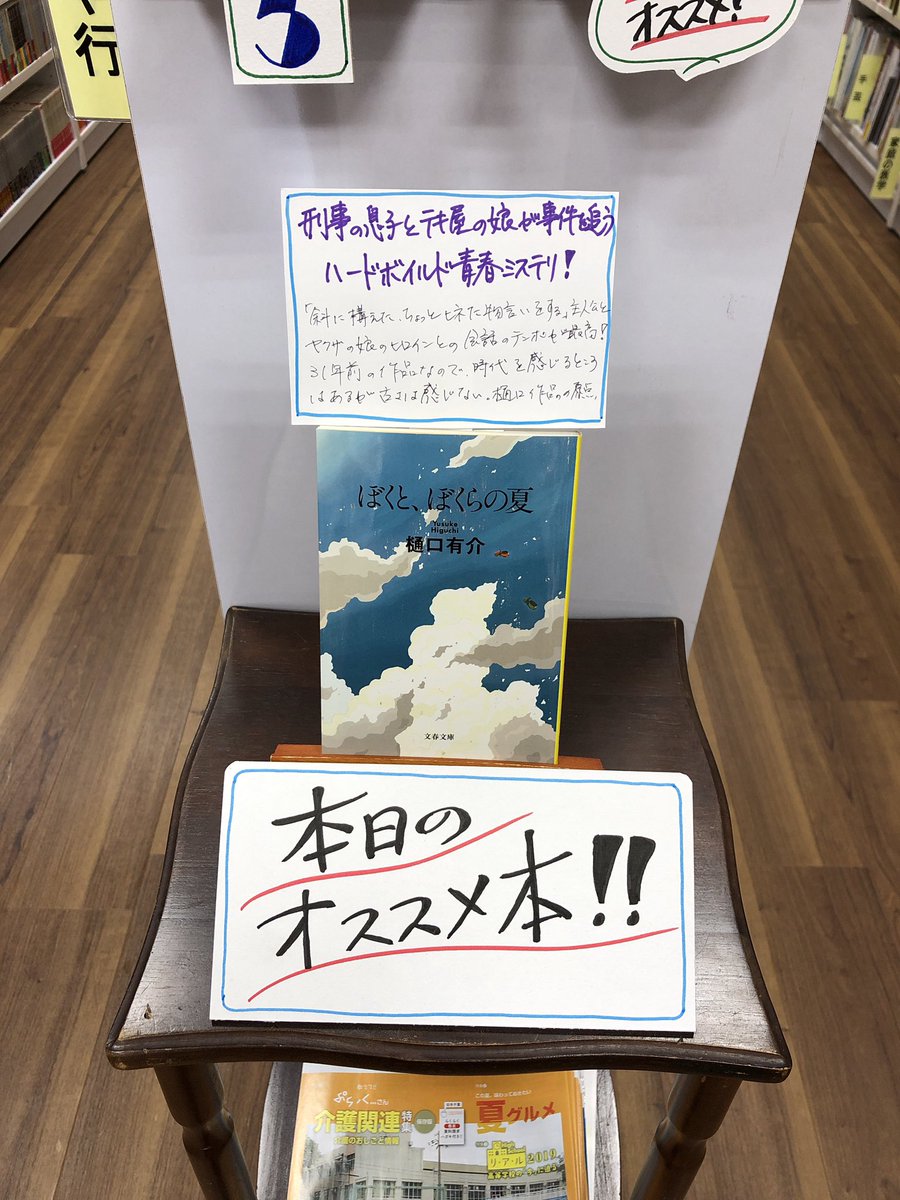 行
3
オススメ!
手芸
家庭の医学
刑事の息子とテキ屋の娘が事件を追う
ハードボイルド青春ミステリ!
「斜に構えた、ちょっとヒネた物言いをする」主人公と
ヤクザの娘のヒロインとの会話のテンポが最高!
31年前の作品なので、時代を感じるところ
はあるが古さは感じない。樋口作品の原点。
ぼくと、ぼくらの夏
Yusuke
Higuchi
樋口有介
文春文庫
本日の
オススメ本!!
ぷらくーさん
介護関連特集
保存版
介護のおしごと情報
夏グルメ
リ・ア・ル
2019